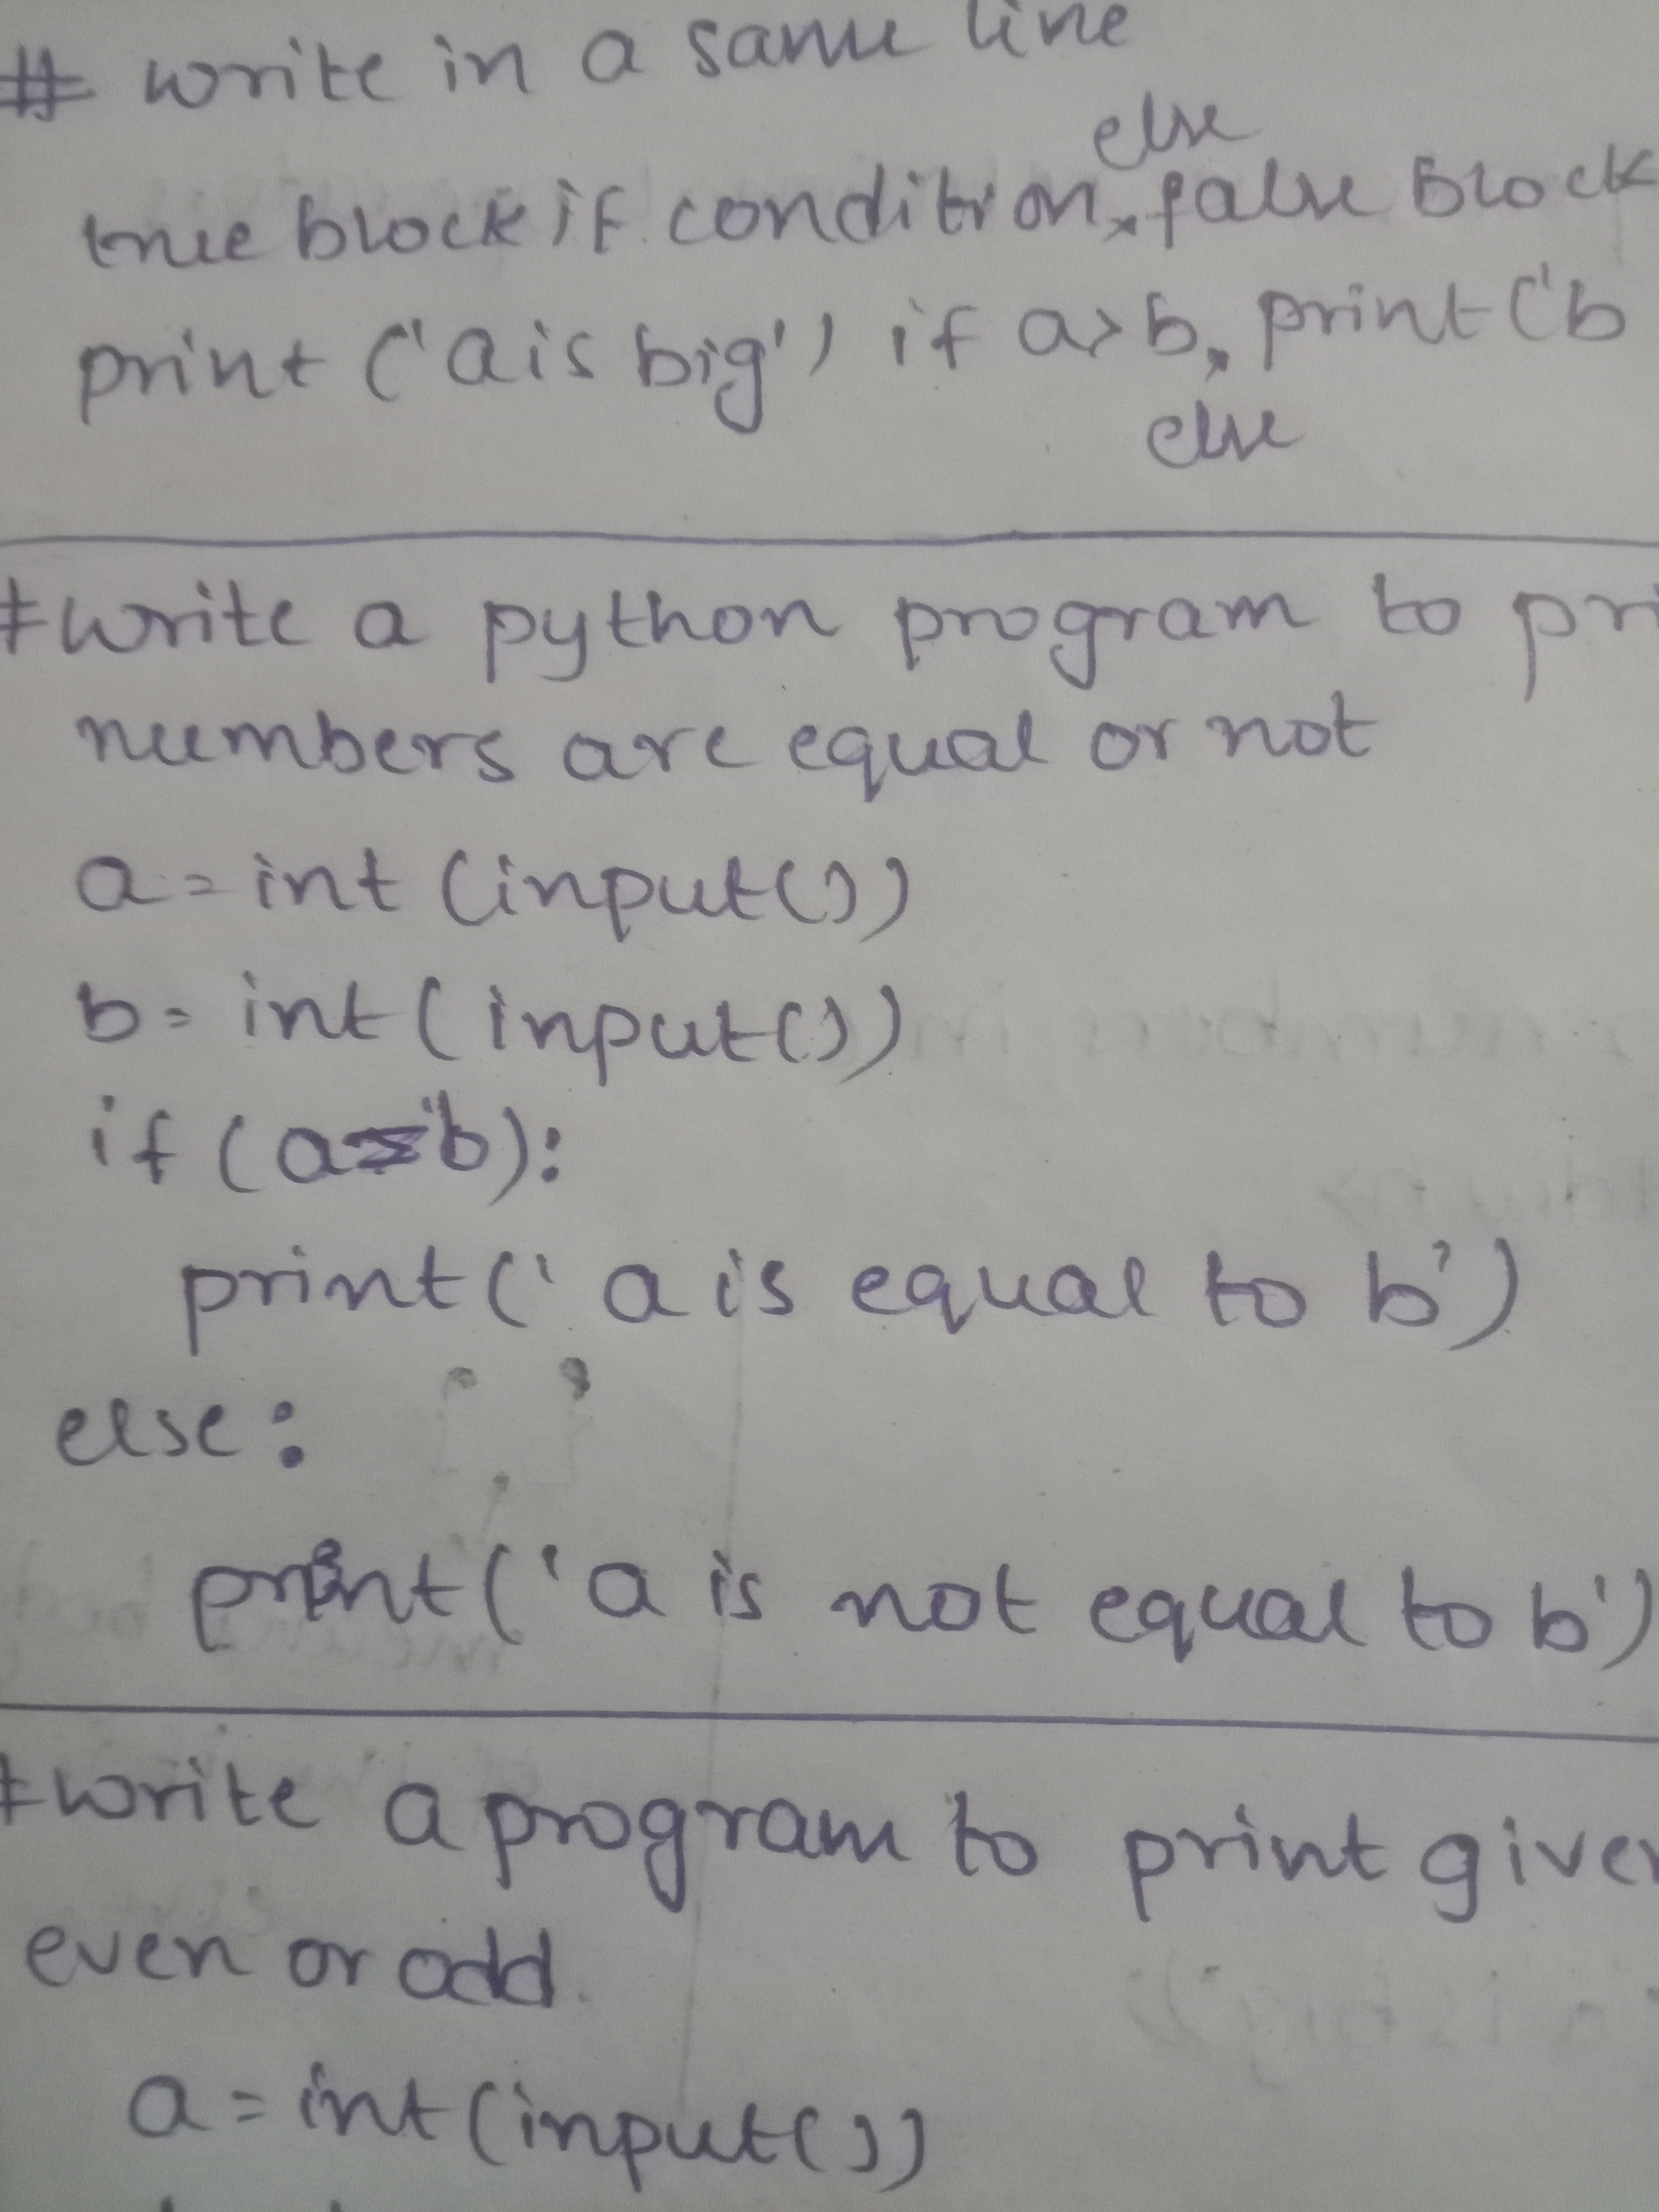 # write in a same line
else
true block if condition, false Block
print ('a is big') if a>b, print ('b
else
#write a python program to pri
numbers are equal or not
a = int (input())
b = int (input())
if (a==b):
print (' a is equal to b')
else:
print (' a is not equal to b')
#write a program to print given
even or odd.
a = int (input())